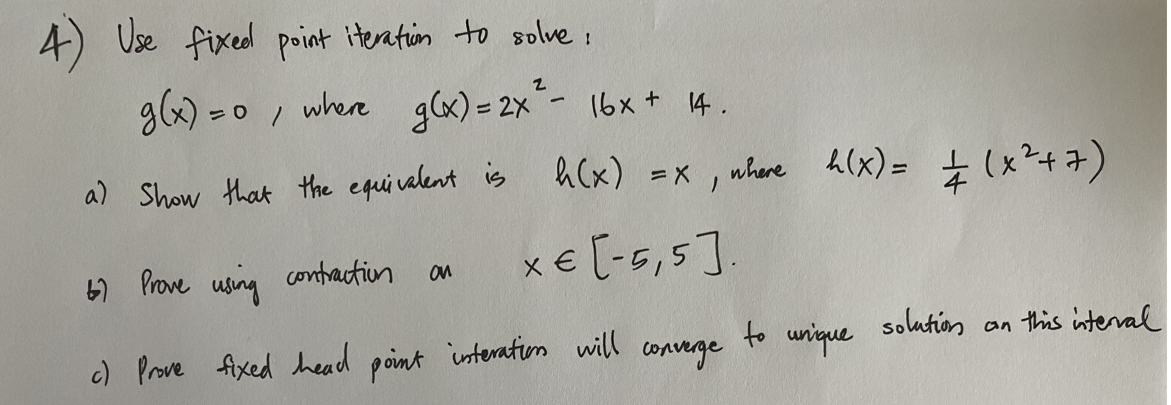 4) Use fixed point iteration to solve:
g(x) = 0 , where g(x) = 2x² - 16x + 14 .
a) Show that the equivalent is h(x) = x , where h(x) = 1/4 (x² + 7)
b) Prove using contraction on x ∈ [-5, 5].
c) Prove fixed head point interation will converge to unique solution on this interval